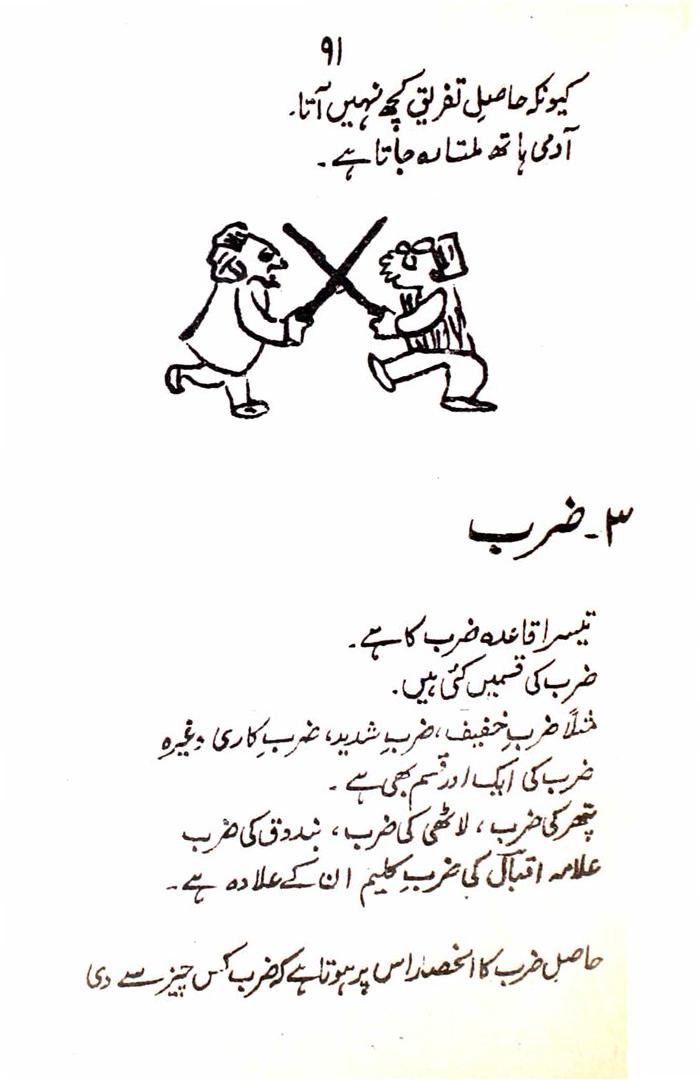 ۹۱
کیونکہ حاصلِ تفریق کچھ نہیں آتا۔
آدمی ہاتھ ملتا رہ جاتا ہے۔
۳۔ ضرب
تیسرا قاعدہ ضرب کا ہے۔
ضرب کی قسمیں کئی ہیں۔
مثلاً ضربِ خفیف، ضربِ شدید، ضربِ کاری وغیرہ
ضرب کی ایک اور قسم بھی ہے۔
پتھر کی ضرب، لاٹھی کی ضرب، بندوق کی ضرب
علامہ اقبالؔ کی ضربِ کلیم ان کے علاوہ ہے۔
حاصلِ ضرب کا انحصار اس پر ہوتا ہے کہ ضرب کس چیز سے دی